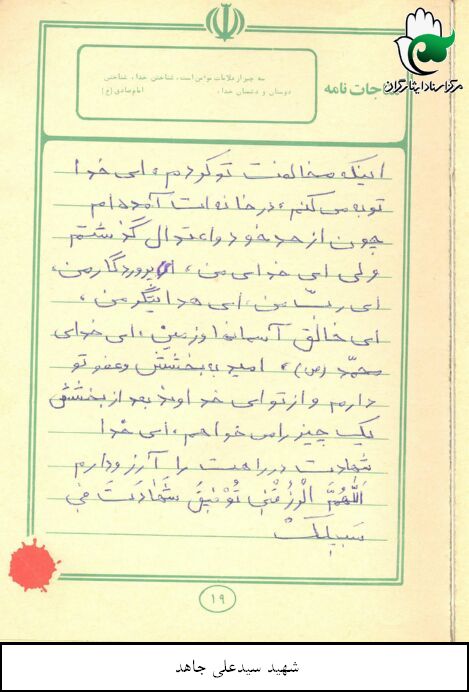 مرکز اسناد ایثارگران
مناجات نامه
سه چیز از علامات مؤمن است، شناختن خدا، شناختن
دوستان و دشمنان خدا.
امام صادق (ع)
اینکه مخالفت تو کردم، ای خدا
توبه می کنم، در خانه ات آمده ام
چون از حد خود و اعتدال گذشتم
ولی ای خدای من، ای پروردگار من،
ای ربّ من، ای هدایتگر من،
ای خالق آسمانها و زمین، ای خدای
محمّد (ص)، امید به بخشش و عفو تو
دارم و از تو ای خداوند بعد از بخشش
یک چیز را می خواهم، ای خدا
شهادت در راهت را آرزو دارم
اَللّهُمَّ الْرزُقْنی تُوْفیقَ شَهادَتَ فی
سَبیلِکْ
۱۹
شهید سیدعلی جاهد